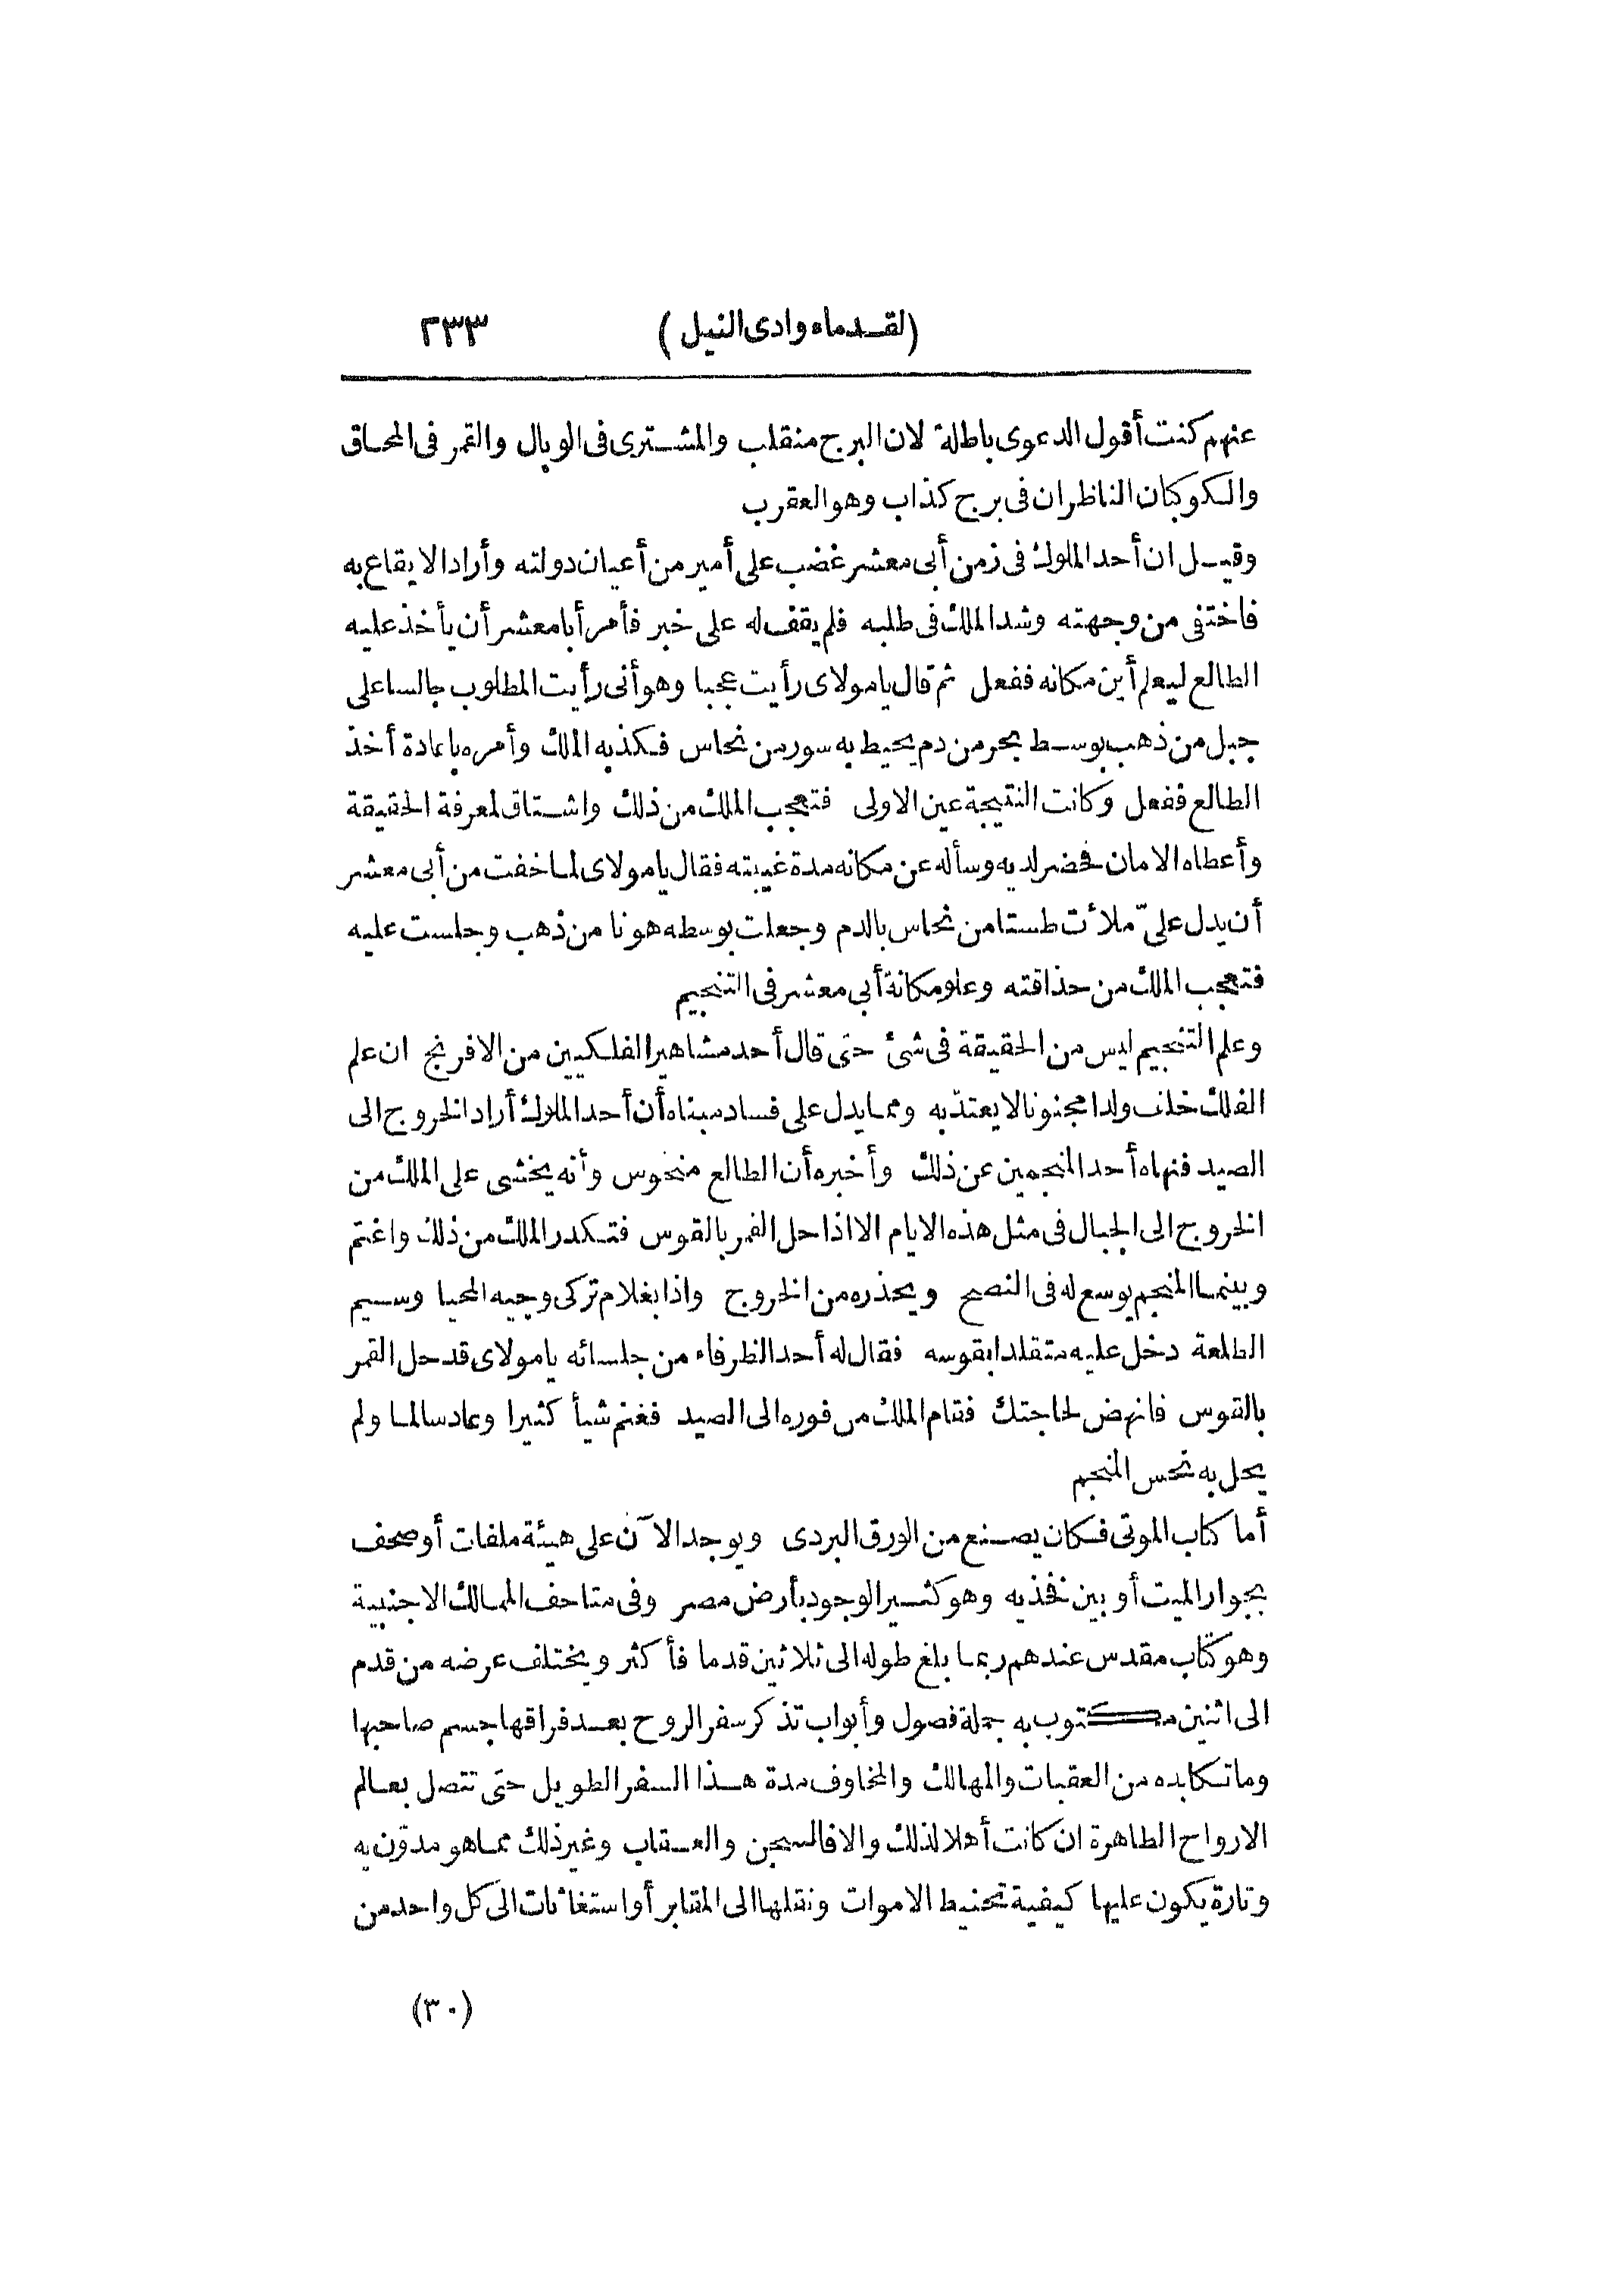 (لقدماء وادى النيل) ٢٣٣
عنهم كنت أقول الدعوى باطلة لان البرج منقلب والمشترى فى الوبال والقمر فى المحاق
والكوكبان الناظران فى برج كذاب وهو العقرب
وقيل ان أحد الملوك فى زمن أبى معشر غضب على أمير من أعيان دولته وأراد الايقاع به
فاختفى من وجهته وشد الملك فى طلبه فلم يقف له على خبر فأمر أبا معشر أن يأخذ عليه
الطالع ليعلم أين مكانه ففعل ثم قال يا مولاى رأيت عجبا وهو أنى رأيت المطلوب جالسا على
جبل من ذهب بوسط بحر من دم يحيط به سور من نحاس فكذبه الملك وأمره باعادة أخذ
الطالع ففعل وكانت النتيجة عين الاولى فتعجب الملك من ذلك واشتاق لمعرفة الحقيقة
وأعطاه الامان فحضر لديه وسأله عن مكانه مدة غيبته فقال يا مولاى لما خفت من أبى معشر
أن يدل علىّ ملأت طستا من نحاس بالدم وجعلت بوسطه هونا من ذهب وجلست عليه
فتعجب الملك من حذاقته وعلو مكانة أبى معشر فى التنجيم
وعلم التنجيم ليس من الحقيقة فى شئ حتى قال أحد مشاهير الفلكيين من الافرنج ان علم
الفلك خلف ولدا مجنونا لا يعتدّ به ومما يدل على فساد مبناه أن أحد الملوك أراد الخروج الى
الصيد فنهاه أحد المنجمين عن ذلك وأخبره أن الطالع منحوس وأنه يخشى على الملك من
الخروج الى الجبال فى مثل هذه الايام الا اذا حل القمر بالقوس فتكدر الملك من ذلك واغتم
وبينما المنجم يوسع له فى النصح ويحذره من الخروج واذا بغلام تركى وجيه المحيا وسيم
الطلعة دخل عليه متقلدا بقوسه فقال له أحد الظرفاء من جلسائه يا مولاى قد حل القمر
بالقوس فانهض لحاجتك فقام الملك من فوره الى الصيد فغنم شيأ كثيرا وعاد سالما ولم
يحل به نحس المنجم
أما كتاب الموتى فكان يصنع من الورق البردى ويوجد الآن على هيئة ملفات أو صحف
بجوار الميت أو بين فخذيه وهو كثير الوجود بأرض مصر وفى متاحف الممالك الاجنبية
وهو كتاب مقدس عندهم ربما بلغ طوله الى ثلاثين قدما فأكثر ويختلف عرضه من قدم
الى اثنين مكتوب به جملة فصول وأبواب تذكر سفر الروح بعد فراقها جسم صاحبها
وما تكابده من العقبات والمهالك والمخاوف مدة هذا السفر الطويل حتى تتصل بعالم
الارواح الطاهرة ان كانت أهلا لذلك والا فالسجن والعقاب وغير ذلك مما هو مدوّن به
وتارة يكون عليها كيفية تحنيط الاموات ونقلها الى المقابر أو استغاثات الى كل واحد من
(٣٠)